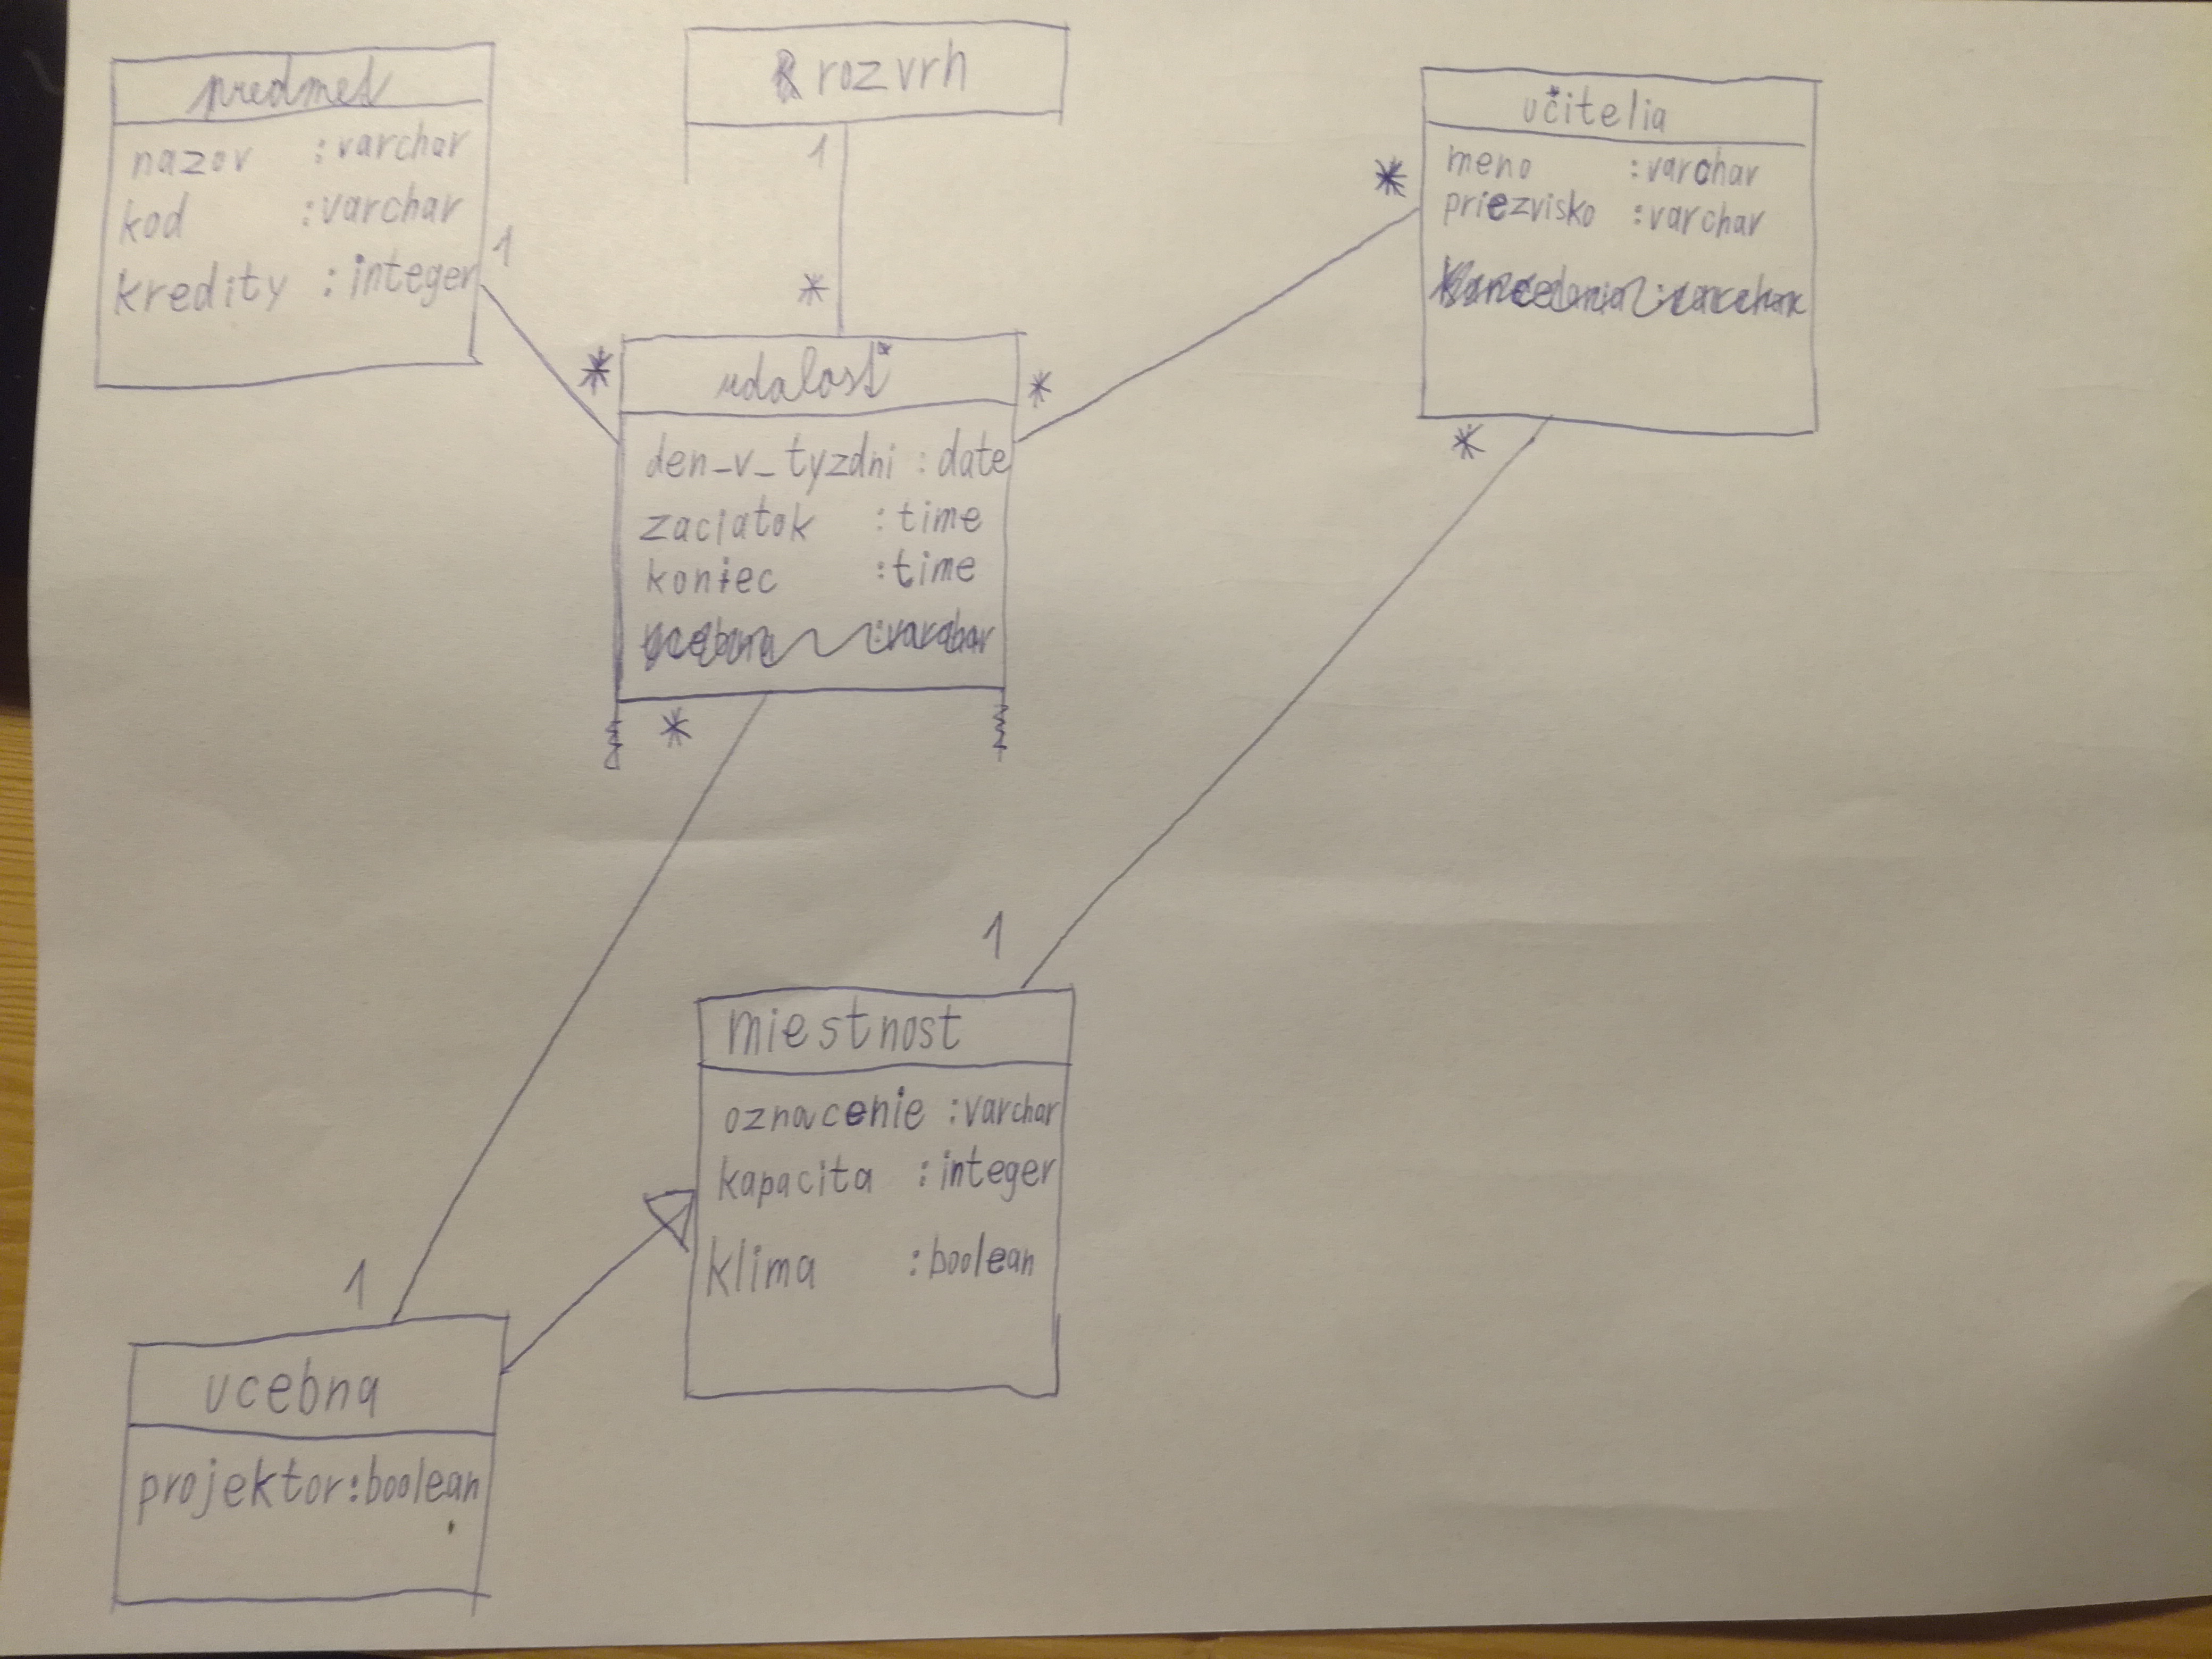 predmet
nazov : varchar
kod : varchar
kredity : integer
1
rozvrh
1
*
učitelia
meno : varchar
priezvisko : varchar
*
*
*
udalosť
*
den_v_tyzdni : date
zaciatok : time
koniec : time
*
1
miestnost
oznacenie : varchar
kapacita : integer
klima : boolean
1
ucebna
projektor : boolean